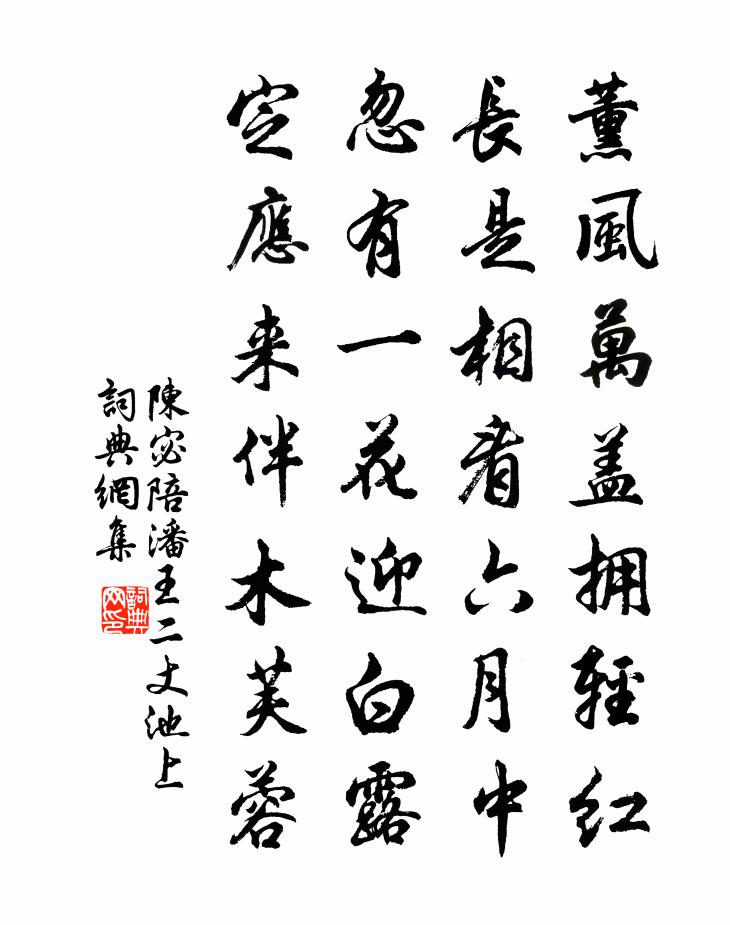 薰風萬盖拥輕紅
長是相看六月中
忽有一花迎白露
定應来伴木芙蓉
陳宓陪潘王二丈池上
詞典網集
詞典网印